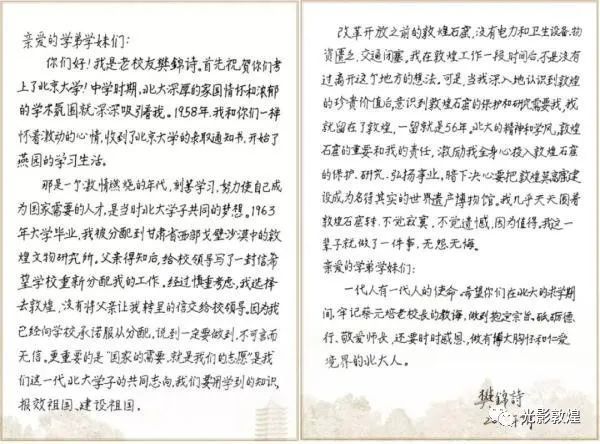 亲爱的学弟学妹们：
你们好！我是老校友樊锦诗。首先祝贺你们考
上了北京大学！中学时期，北大深厚的家国情怀和浓郁
的学术氛围就深深吸引着我。1958年，我和你们一样
怀着激动的心情，收到了北京大学的录取通知书，开始了
燕园的学习生活。
那是一个激情燃烧的年代，刻苦学习、努力使自己成
为国家需要的人才，是当时北大学子共同的梦想。1963
年大学毕业，我被分配到甘肃省西部戈壁沙漠中的敦
煌文物研究所。父亲得知后，给校领导写了一封信希
望学校重新分配我的工作。经过慎重考虑，我选择
去敦煌，没有将父亲让我转呈的信交给校领导。因为我
已经向学校承诺服从分配，说到一定要做到，不可言而
无信。更重要的是“国家的需要，就是我们的志愿”是我
们这一代北大学子的共同志向，我们要用学到的知识，
报效祖国、建设祖国。
改革开放之前的敦煌石窟，没有电力和卫生设备、物
资匮乏、交通闭塞。我在敦煌工作一段时间后，不是没有
过离开这个地方的想法。可是，当我深入地认识到敦煌
的珍贵价值后，意识到敦煌石窟的保护和研究需要我，我
就留在了敦煌，一留就是56年。北大的精神和学风，敦煌
石窟的重要和我的责任，激励我全身心投入敦煌石窟
的保护、研究、弘扬事业。暗下决心要把敦煌莫高窟建
设成为名符其实的世界遗产博物馆。我几乎天天围着
敦煌石窟转，不觉寂寞，不觉遗憾，因为值得。我这一
辈子就做了一件事，无怨无悔。
亲爱的学弟学妹们：
一代人有一代人的使命。希望你们在北大的求学期
间，牢记蔡元培老校长的教诲，做到抱定宗旨、砥砺德
行、敬爱师长，还要时时感恩，做有博大胸怀和仁爱
境界的北大人。
樊锦诗
光影敦煌